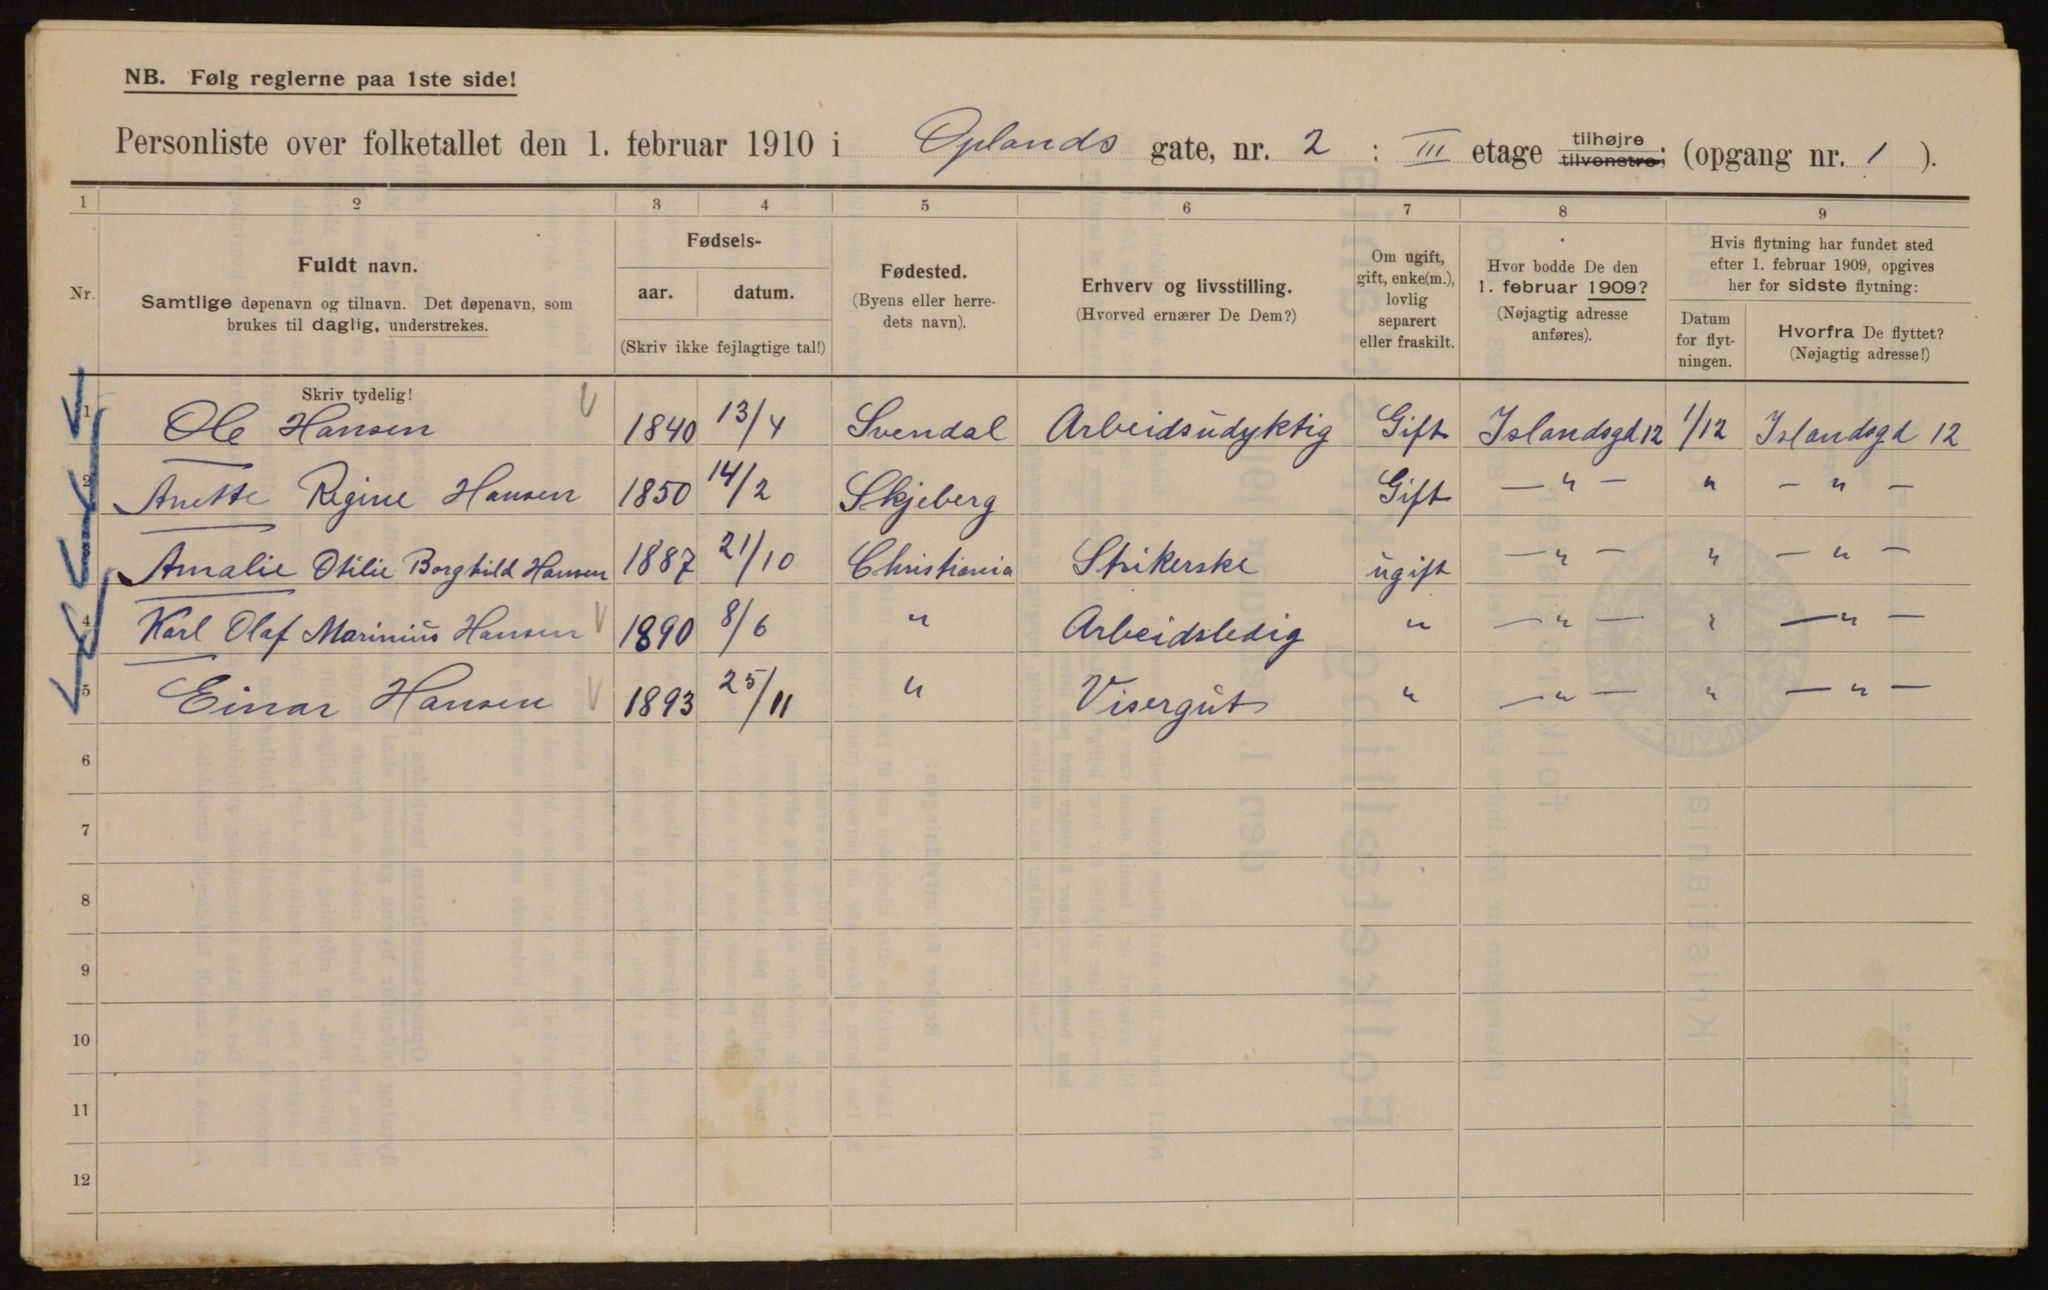 NB. Følg reglerne paa 1ste side!
Personliste over folketallet den 1. februar 1910 i Oplands gate, nr. 2 : III etage tilhøjre tilvenstre; (opgang nr. 1 ).
1 2 3 4 5 6 7 8 9
Nr.
Fuldt navn.
Samtlige døpenavn og tilnavn. Det døpenavn, som
brukes til daglig, understrekes.
Fødsels-
aar. datum.
(Skriv ikke fejlagtige tal!)
Fødested.
(Byens eller herre-
dets navn).
Erhverv og livsstilling.
(Hvorved ernærer De Dem?)
Om ugift,
gift, enke(m.),
lovlig
separert
eller fraskilt.
Hvor bodde De den
1. februar 1909?
(Nøjagtig adresse
anføres).
Hvis flytning har fundet sted
efter 1. februar 1909, opgives
her for sidste flytning:
Datum
for flyt-
ningen.
Hvorfra De flyttet?
(Nøjagtig adresse!)
Skriv tydelig!
1 Ole Hansen 1840 13/4 Svendal Arbeidsudyktig Gift Islandsgd 12 1/12 Islandsgd 12
2 Anette Regine Hansen 1850 14/2 Skjeberg Gift — " — " — " —
3 Amalie Otilie Borghild Hansen 1887 21/10 Christiania Strikerske ugift — " — " — " —
4 Karl Olaf Marinius Hansen 1890 8/6 " Arbeidsledig " — " — " — " —
5 Einar Hansen 1893 25/11 " Visergut " — " — " — " —
6
7
8
9
10
11
12